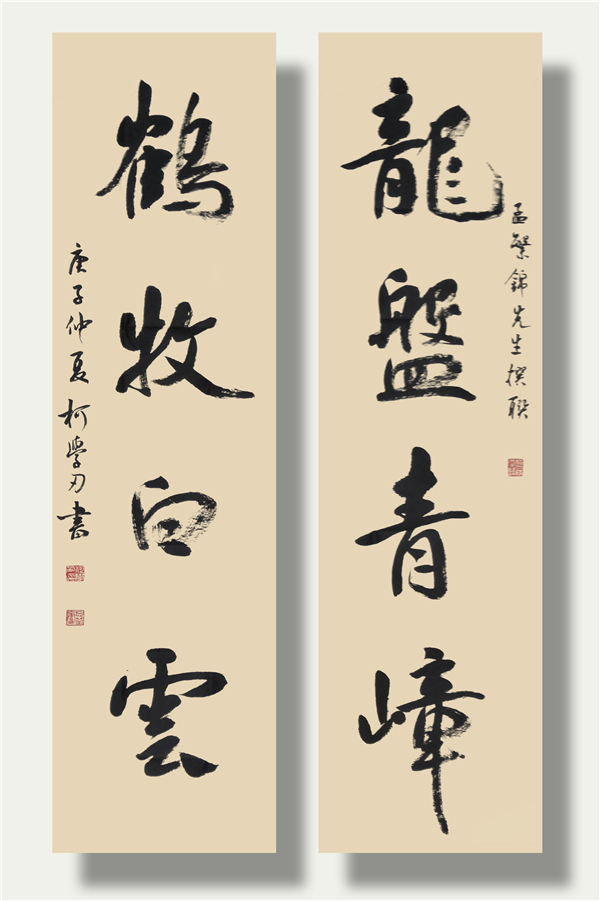 龍盤青嶂
孟繁錦先生撰聯
鶴牧白雲
庚子仲夏柯學刃書